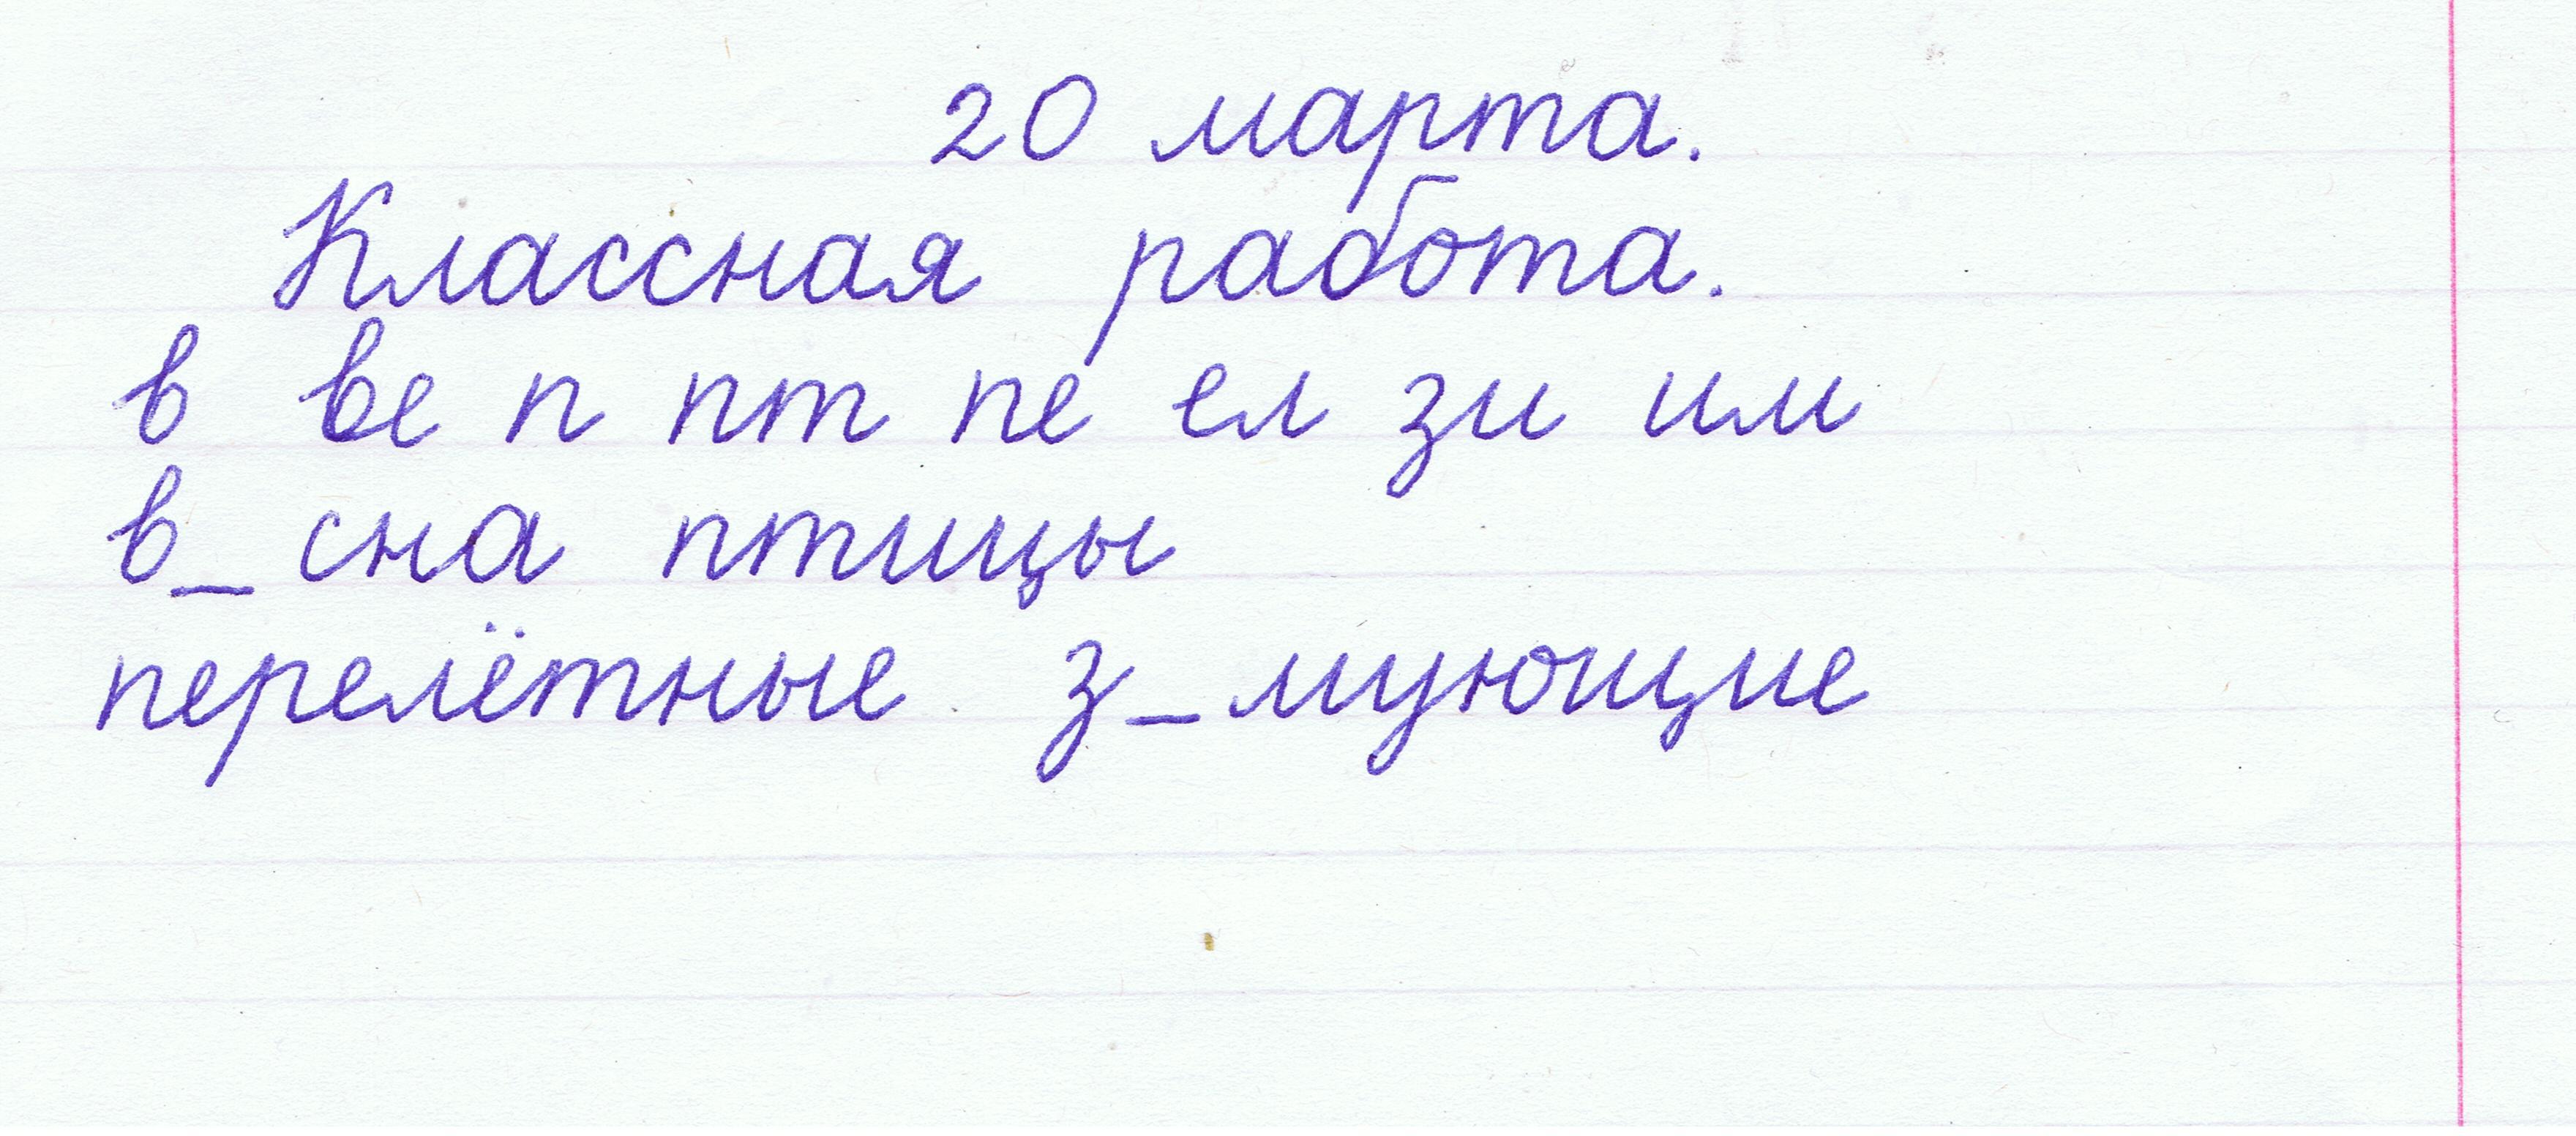 20 марта.
Классная работа.
в ве п пт пе ел зи им
в_сна птицы
перелётные з_мующие